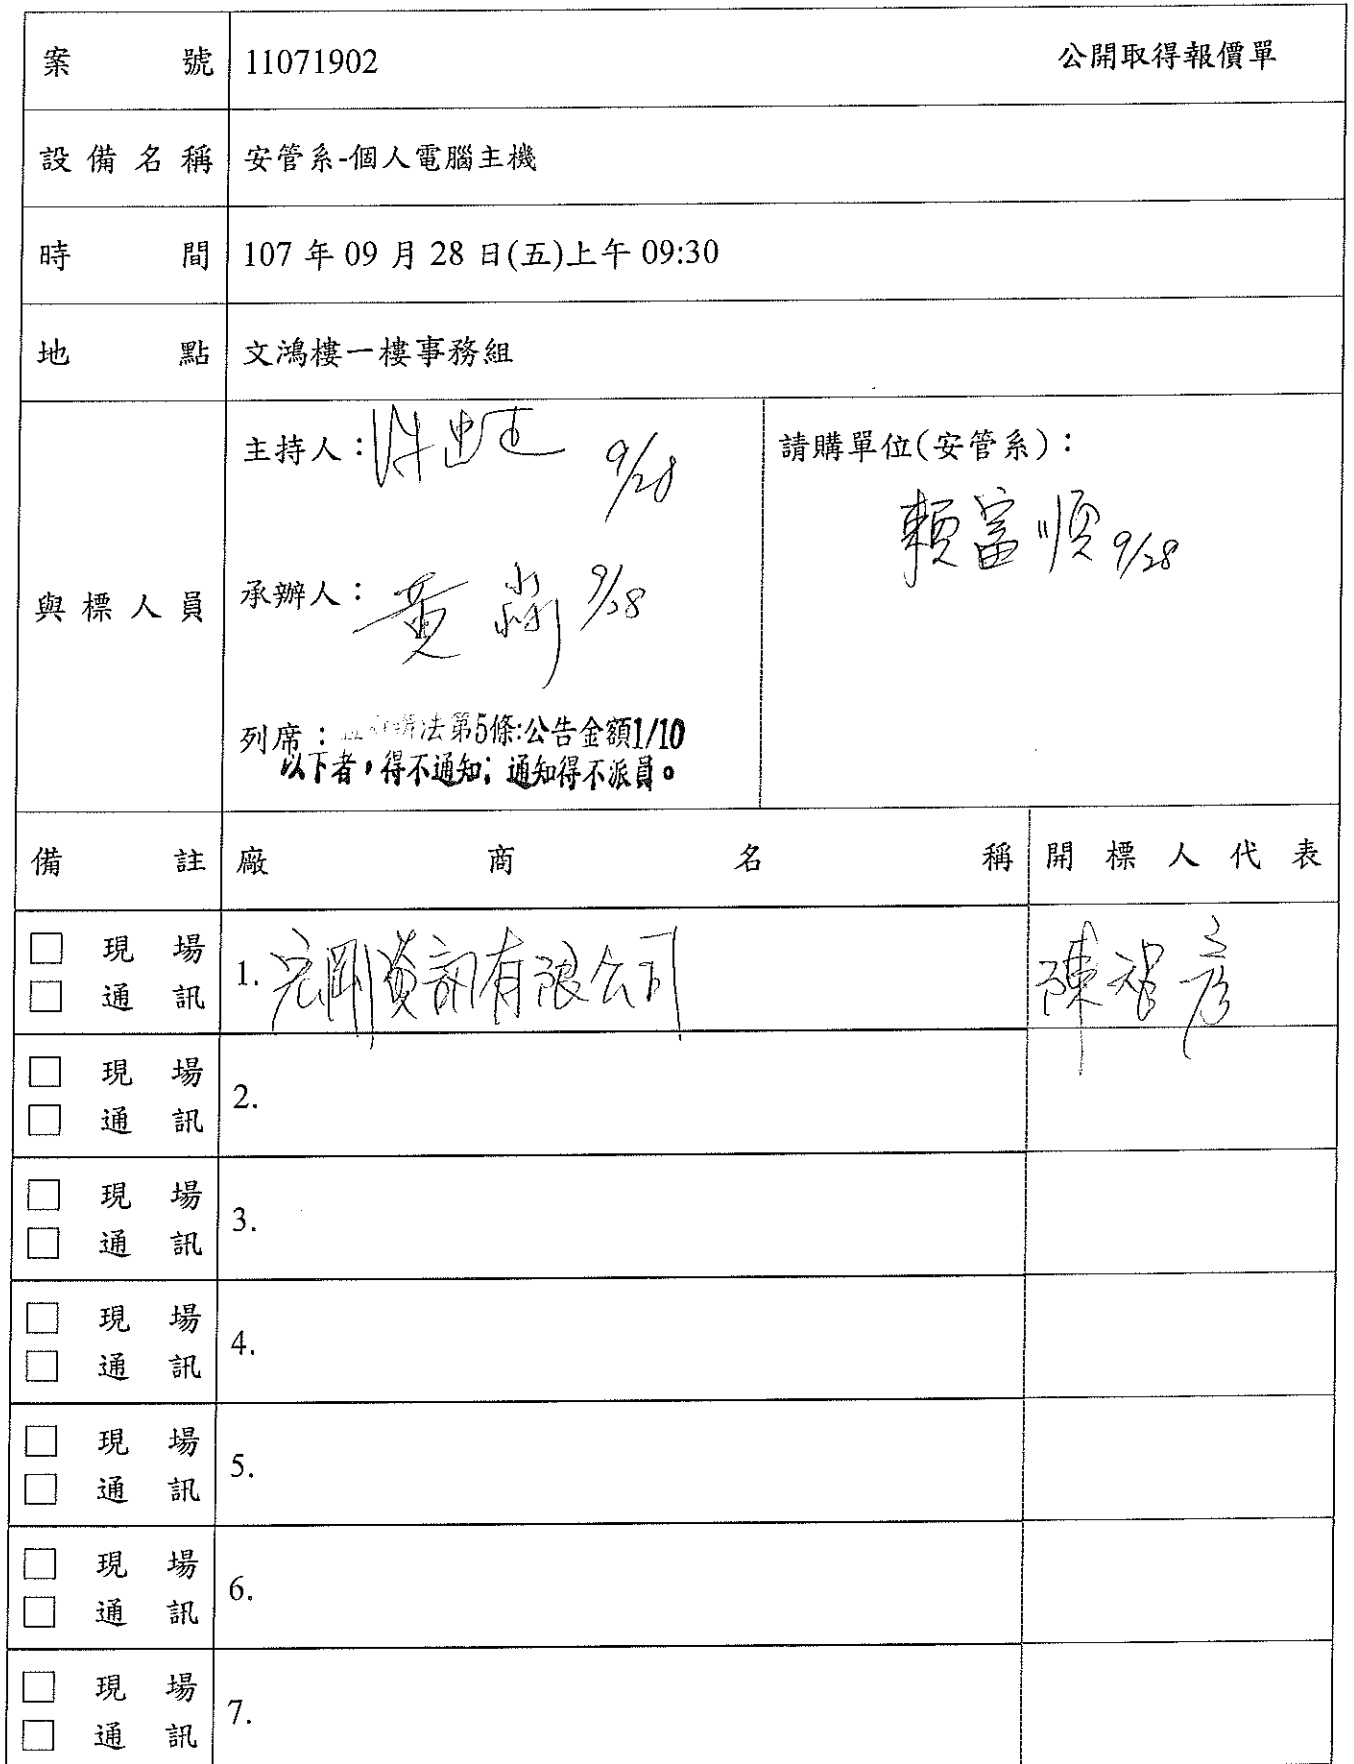 案號 11071902 公開取得報價單
設備名稱 安管系-個人電腦主機
時間 107 年 09 月 28 日(五)上午 09:30
地點 文鴻樓一樓事務組
與標人員
主持人： 9/28
請購單位(安管系)：
賴富順 9/28
承辦人：黃 9/28
列席：法第5條:公告金額1/10
以下者，得不通知；通知得不派員。
備註 廠商名稱 開標人代表
□ 現場
□ 通訊
1. 宏剛資訊有限公司 陳智彥
□ 現場
□ 通訊
2.
□ 現場
□ 通訊
3.
□ 現場
□ 通訊
4.
□ 現場
□ 通訊
5.
□ 現場
□ 通訊
6.
□ 現場
□ 通訊
7.